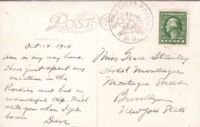 POST
Oct. 14 - 1914
Am on my way home.
Have just spent my
vacation in the
Rockies and had a
wonderful trip. Will
write you when I get
home
Dave
Miss Grace Stanley
Hotel Montague
Montague Street
Brooklyn
New York State